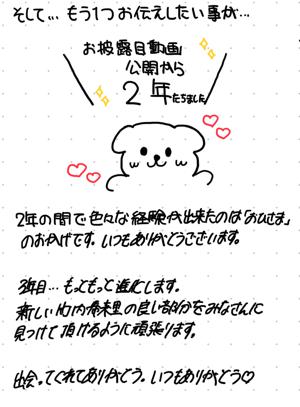 そして… もう1つお伝えしたい事が…
お披露目動画
公開から
2年たちました
2年の間で色々な経験が出来たのは「おひさま」
のおかげです。いつもありがとうございます。
3年目… もっともっと進化します。
新しい竹内希来里の良い部分をみなさんに
見つけて頂けるように頑張ります。
出会ってくれてありがとう。いつもありがとう♡